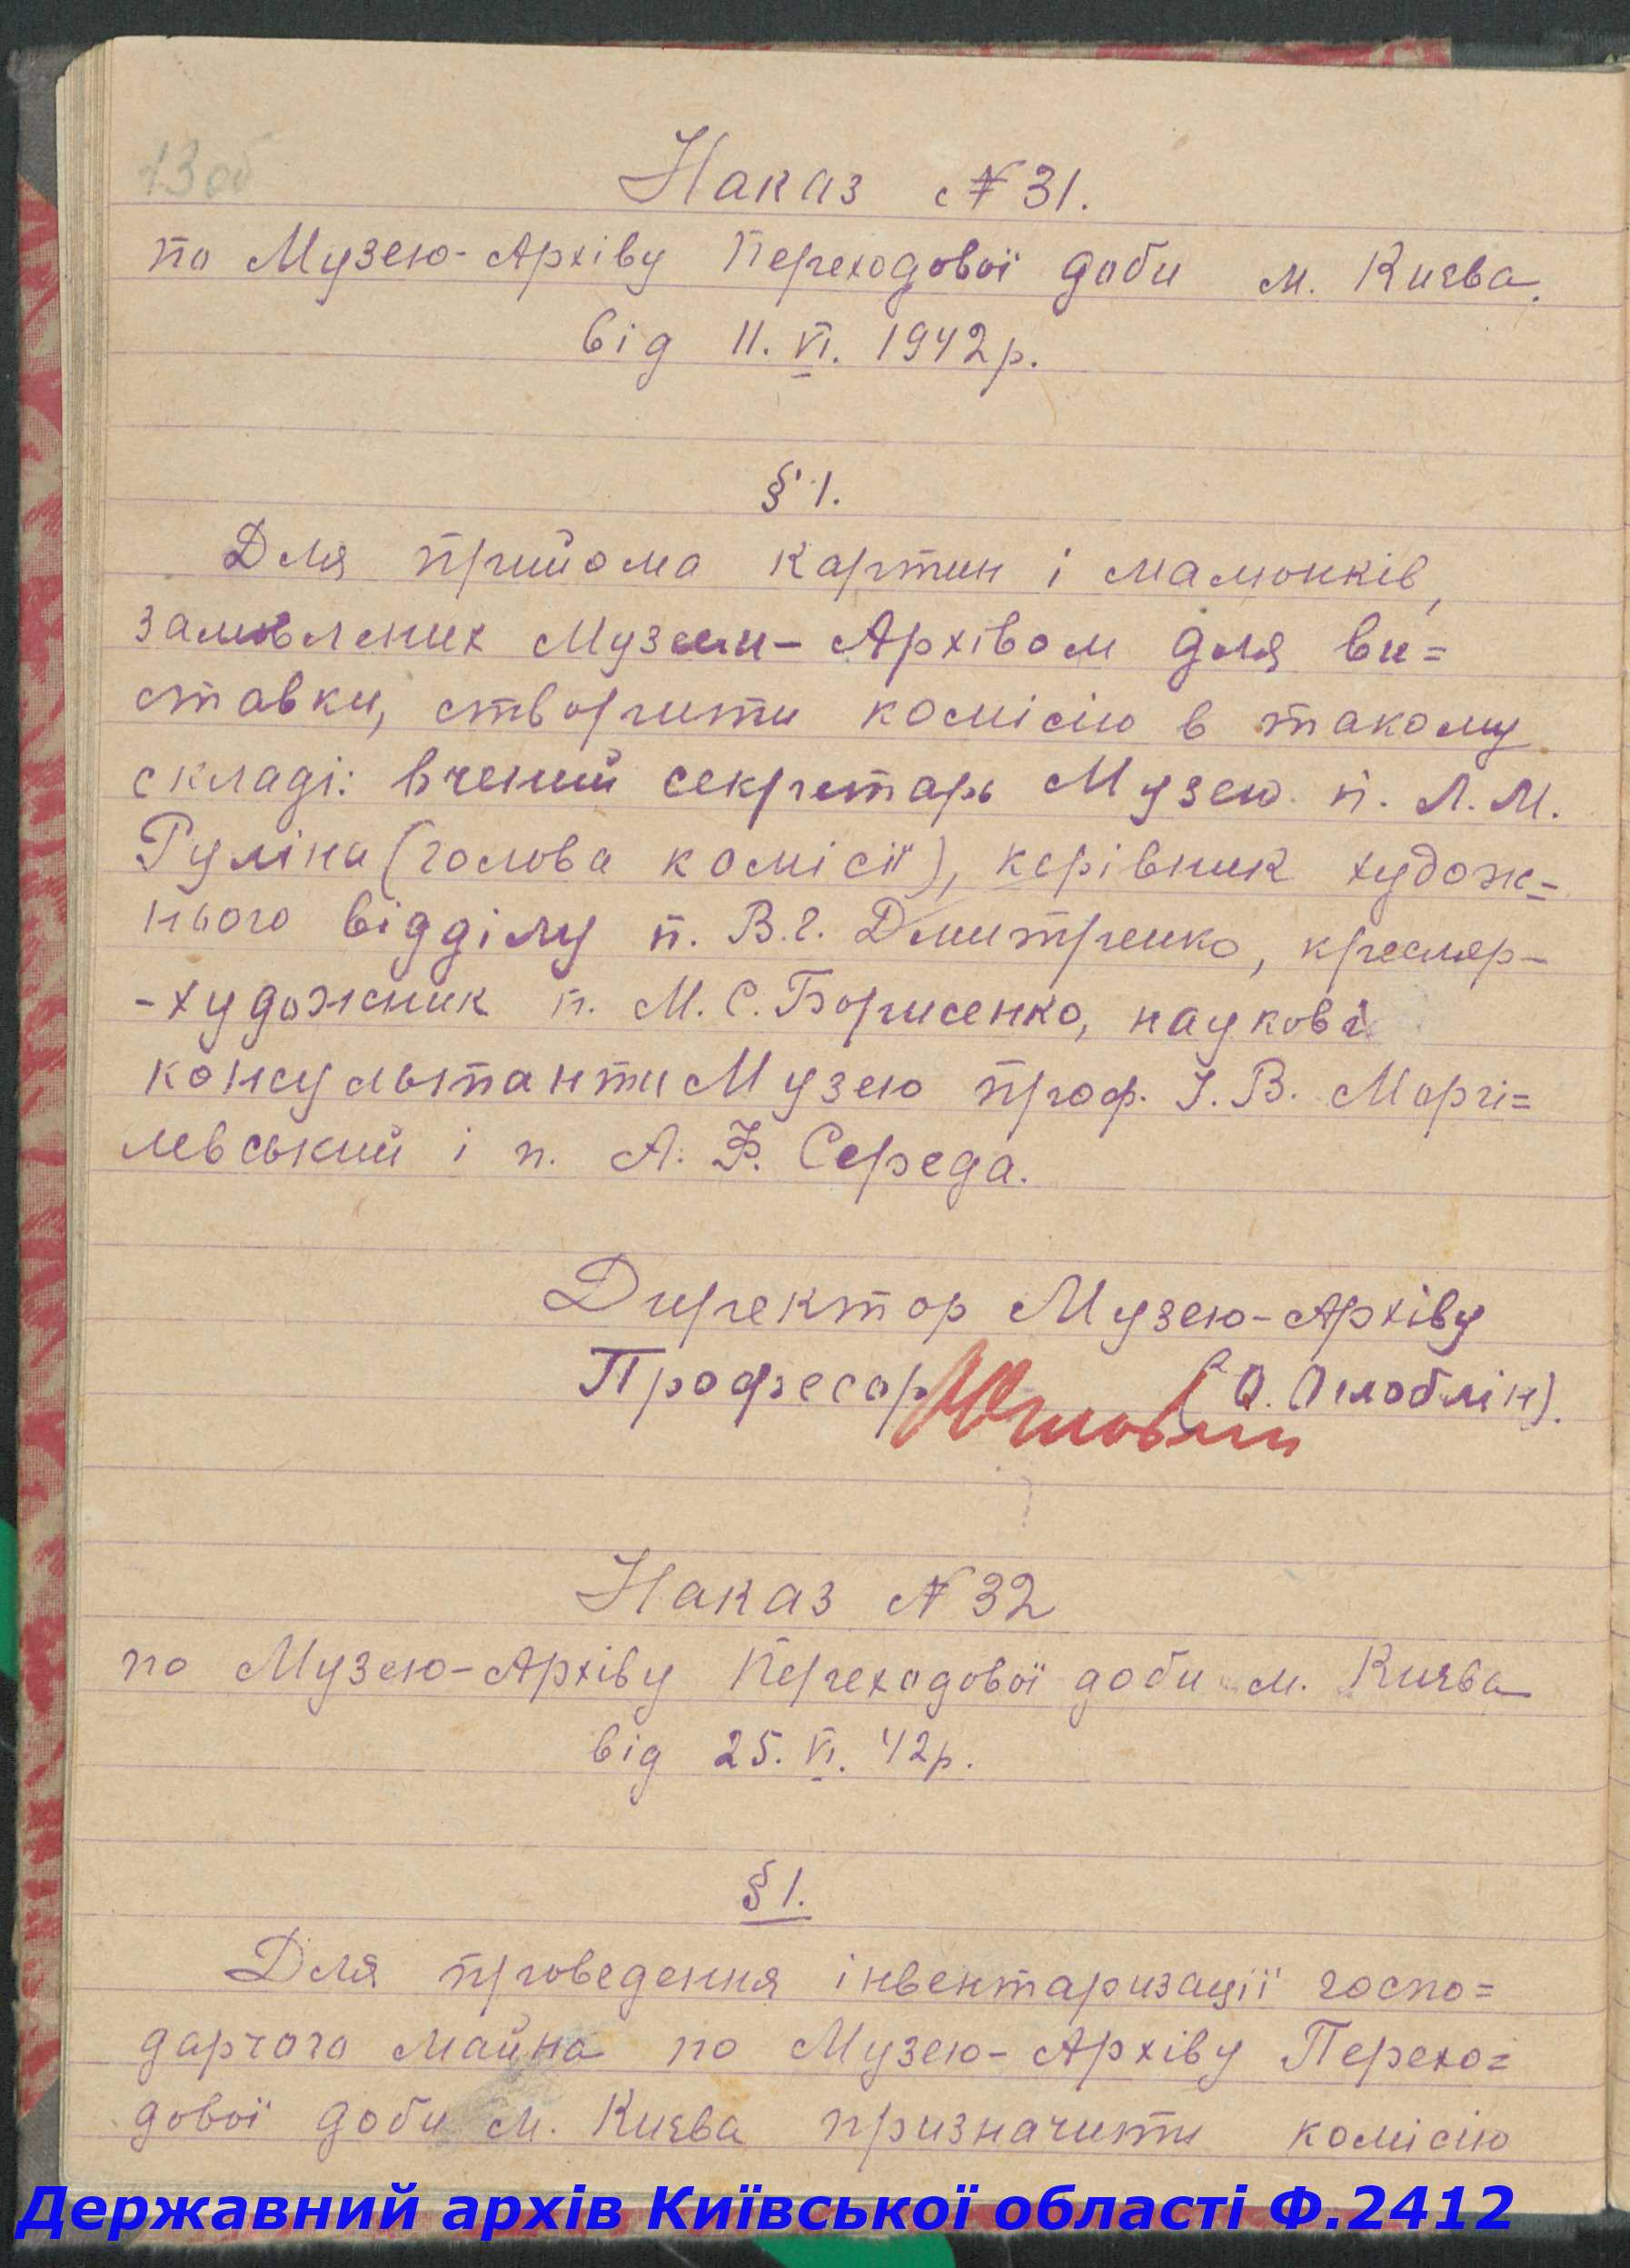 13 об
Наказ № 31.
по Музею-Архіву Переходової доби м. Києва.
від 11. VI. 1942 р.
§ 1.
Для прийома картин і малюнків,
замовлених Музеєм-Архівом для ви=
ставки, створити комісію в такому
складі: вчений секретарь Музею п. Л. М.
Руліна (голова комісії), керівник худож=
нього відділу п. В. Є. Дмитренко, кресляр-
-художник п. М. С. Борисенко, наукові
консультанти Музею проф. І. В. Моргі=
левський і п. А. Ф. Середа.
Директор Музею-Архіву
Професор (О. Оглоблін).
Наказ № 32
по Музею-Архіву Переходової доби м. Києва
від 25. VI. 42 р.
§ 1.
Для проведення інвентаризації госпо=
дарчого майна по Музею-Архіву Перехо=
дової доби м. Києва призначити комісію
Державний архів Київської області Ф.2412